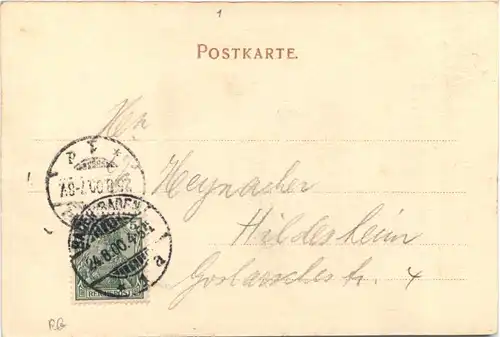 1
POSTKARTE.
Herrn
Heynacher
Hildesheim
Goslarschestr. 4
BADEN-BADEN
24.8.00.
* 1 a